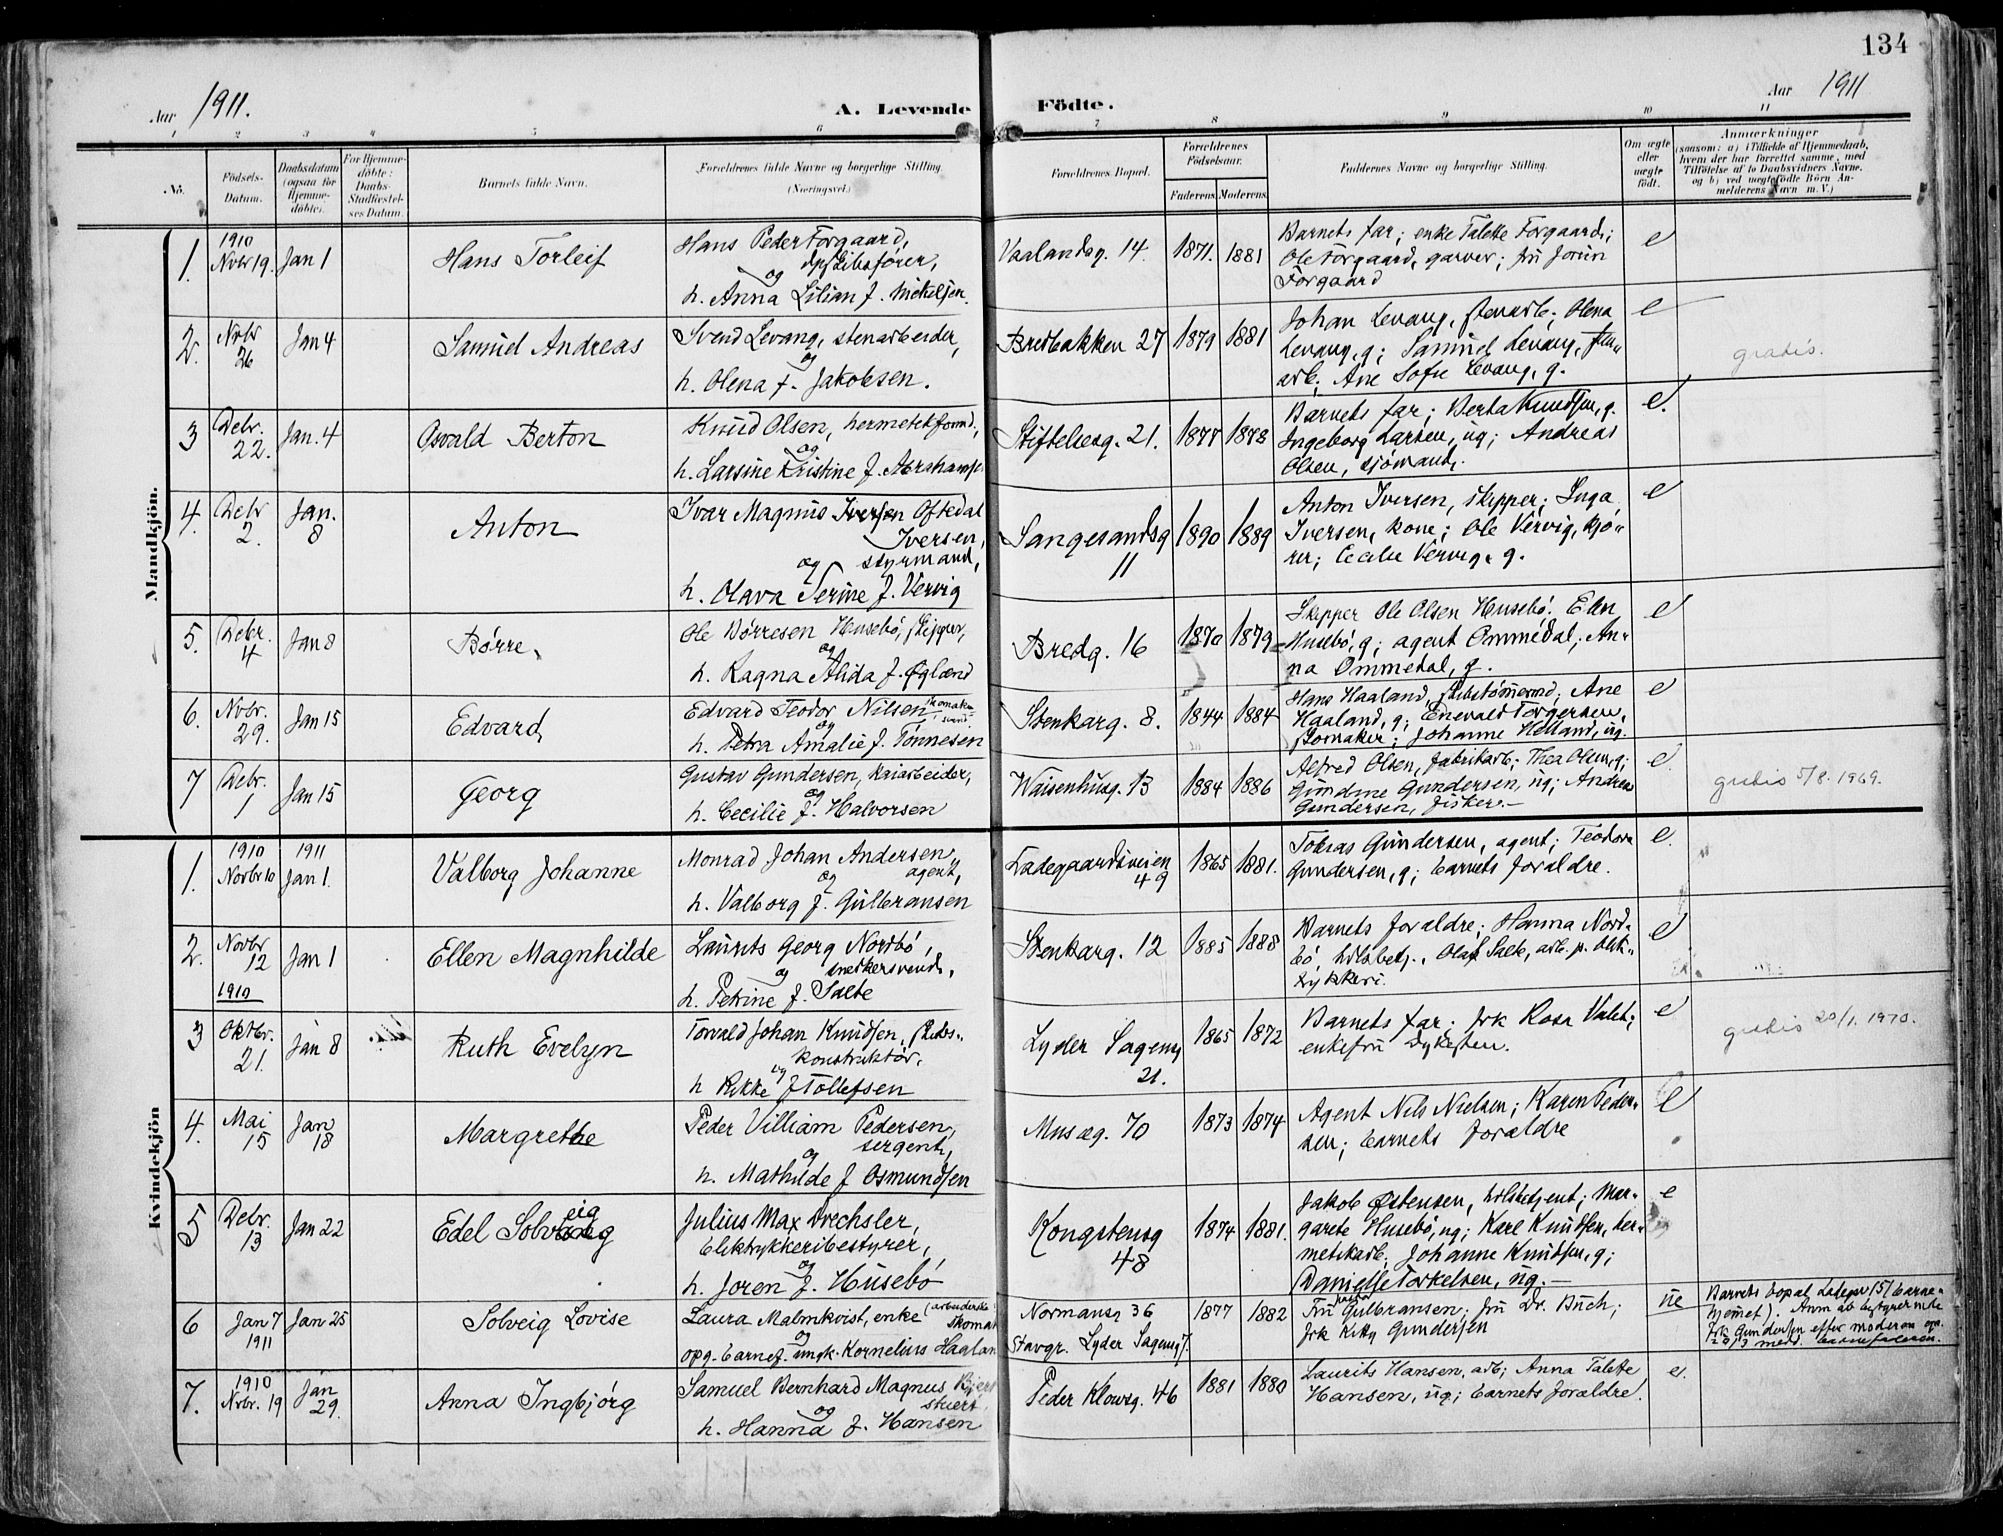 134
Aar 1911. A. Levende Födte. Aar 1911
1 2 3 4 5 6 7 8 9 10 11
No. Födsels-Datum. Daabsdatum (ogsaa for Hjemmedöbte). For Hjemmedöbte: Daabs-Stadfæstelses Datum. Barnets fulde Navn. Forældrenes fulde Navne og borgerlige Stilling. (Næringsvei.) Forældrenes Bopæl. Forældrenes Födselsaar. Faderens. Moderens. Faddernes Navne og borgerlige Stilling. Om ægte eller uægte födt. Anmærkninger (saasom: a) i Tilfælde af Hjemmedaab, hvem der har forrettet samme, med Tilföielse af to Daabsvidners Navne, og b) ved uægtefödte Börn Anmelderens Navn m. V.)
Mandkjön.
1. 1910 Novbr 19. Jan 1 Hans Torleif
Hans Peder Forgaard,
og
h. Anna Lilian f. Michelsen.
Vaalandsg. 14. 1871. 1881
Barnets far; enke Talette Forgaard;
Ole Forgaard, garver; fru Jorun
Forgaard
e
2. Nvbr 26 Jan 4 Samuel Andreas
Svend Levang, stenarbeider,
og
h. Olena f. Jakobsen.
Bredbakken 27 1879 1881
Johan Levang, stenarb; Olena
Levang, g; Samuel Levang, sten-
arb; Ane Sofie Levang, g.
e
gratis.
3 Debr. 22. Jan. 4 Osvald Berton
Knud Olsen, hermetikform,
og
h. Larsine Kristine f. Abrahams.
Stiftelsesg. 21. 1877 1878
Barnets far; Berta Knudsen, g.
Ingeborg Larsen, ug; Andreas
Olsen, sjömand.
e.
4. Debr 2. Jan. 8 Anton
Ivar Magnus Iversen Oftedal
Iversen,
og styrmand,
h. Olava Serine f. Vervig
Sangesandsg 11 1890 1889
Anton Iversen, skipper; Inga
Iversen, kone; Ole Vervig, kjö-
rer; Cecilie Vervig, g.
e
5. Debr. 4 Jan 8 Børre
Ole Børresen Husebö, skipper,
og
h. Ragna Alida f. Øglænd
Bredg. 16 1870 1879
Skipper Ole Olsen Husebö. Elen
Husebö, g; agent Ommedal; An-
na Ommedal, g.
e
6. Nvbr. 29. Jan 15 Edvard
Edvard Teodor Nilsen skomaker
svend
og
h. Petra Amalie f. Tönnesen
Stenkarg. 8. 1844 1884
Hans Haaland, skibstömmermd; Ane
Haaland, g; Enevald Torgersen,
skomaker; Johanne Helland, ug.
e
7 Debr. 1 Jan 15 Georg
Gustav Gundersen, kaiarbeider,
og
h. Cecilie f. Halvorsen
Waisenhusg. 13 1884 1886
Alfred Olsen, fabrikarb; Thea Olsen, g;
Gundine Gundersen, ug; Andreas
Gundersen, fisker.
e.
gratis 5/8. 1969.
Kvindekjön
1. 1910 Novbr 10 1911 Jan 1. Valborg Johanne
Monrad Johan Andersen
og agent,
h. Valborg f. Gulbransen
Ladegaardsveien 49 1865 1881.
Tobias Gundersen, agent; Teodora
Gundersen, g; barnets forældre.
e.
2. Novbr 12 1910 Jan 1 Ellen Magnhilde
Laurits Georg Nordbö,
og snekkersvend,
h. Petrine f. Salte
Stenkarg. 12 1885 1888
Barnets forældre; Hanna Nord-
bö, Olaf Salte, arb. p. blik-
trykkeri.
e
3 Oktbr. 21. Jan 8 Ruth Evelyn
Torvald Johan Knudsen, skibs-
konstruktör,
og
h. Rikke f Tollefsen
Lyder Sagensg 21. 1865 1872
Barnets far; frk Rosa Valet;
enkefru
e
gratis 20/1. 1970.
4. Mai 15 Jan 18 Margrethe
Peder Villiam Pedersen,
og sergent,
h. Mathilde f Osmundsen
Musæg. 70 1873 1874
Agent Nils Nielsen; Karen Peder-
sen; barnets forældre
e
5 Debr. 13 Jan 22 Edel Solveig
Julius Max Drechsler,
bliktrykkeribestyrer,
og
h. Joren f. Husebö
Kongstensg 48 1874 1881.
Jakob Østensen, hdlsbetjent; Mar-
garete Husebö, ug; Karl Knudsen, her-
metikarb. Johanne Knudsen, g;
Danielle Torkelsen, ug.
e
6 Jan 7 1911 Jan 25 Solveig Lovise
Laura Malmkvist, enke (arbeiderske
og
opg. barnef. ungk. Kornelius Haaland
Normansg 36
Stavgr. Lyder Sagensg 7. 1877 1882
Fru Gulbransen; fru Dr. Buch;
frk Kitty Gundersen
ue
7. 1910 Nvbr. 19 Jan 29. Anna Ingbjörg
Samuel Bernhard Magnus
og
h. Hanna f. Hansen
Peder Klowsg. 46 1881 1880
Laurits Hansen, arb; Anna Talette
Hansen, ug; barnets forældre.
e.